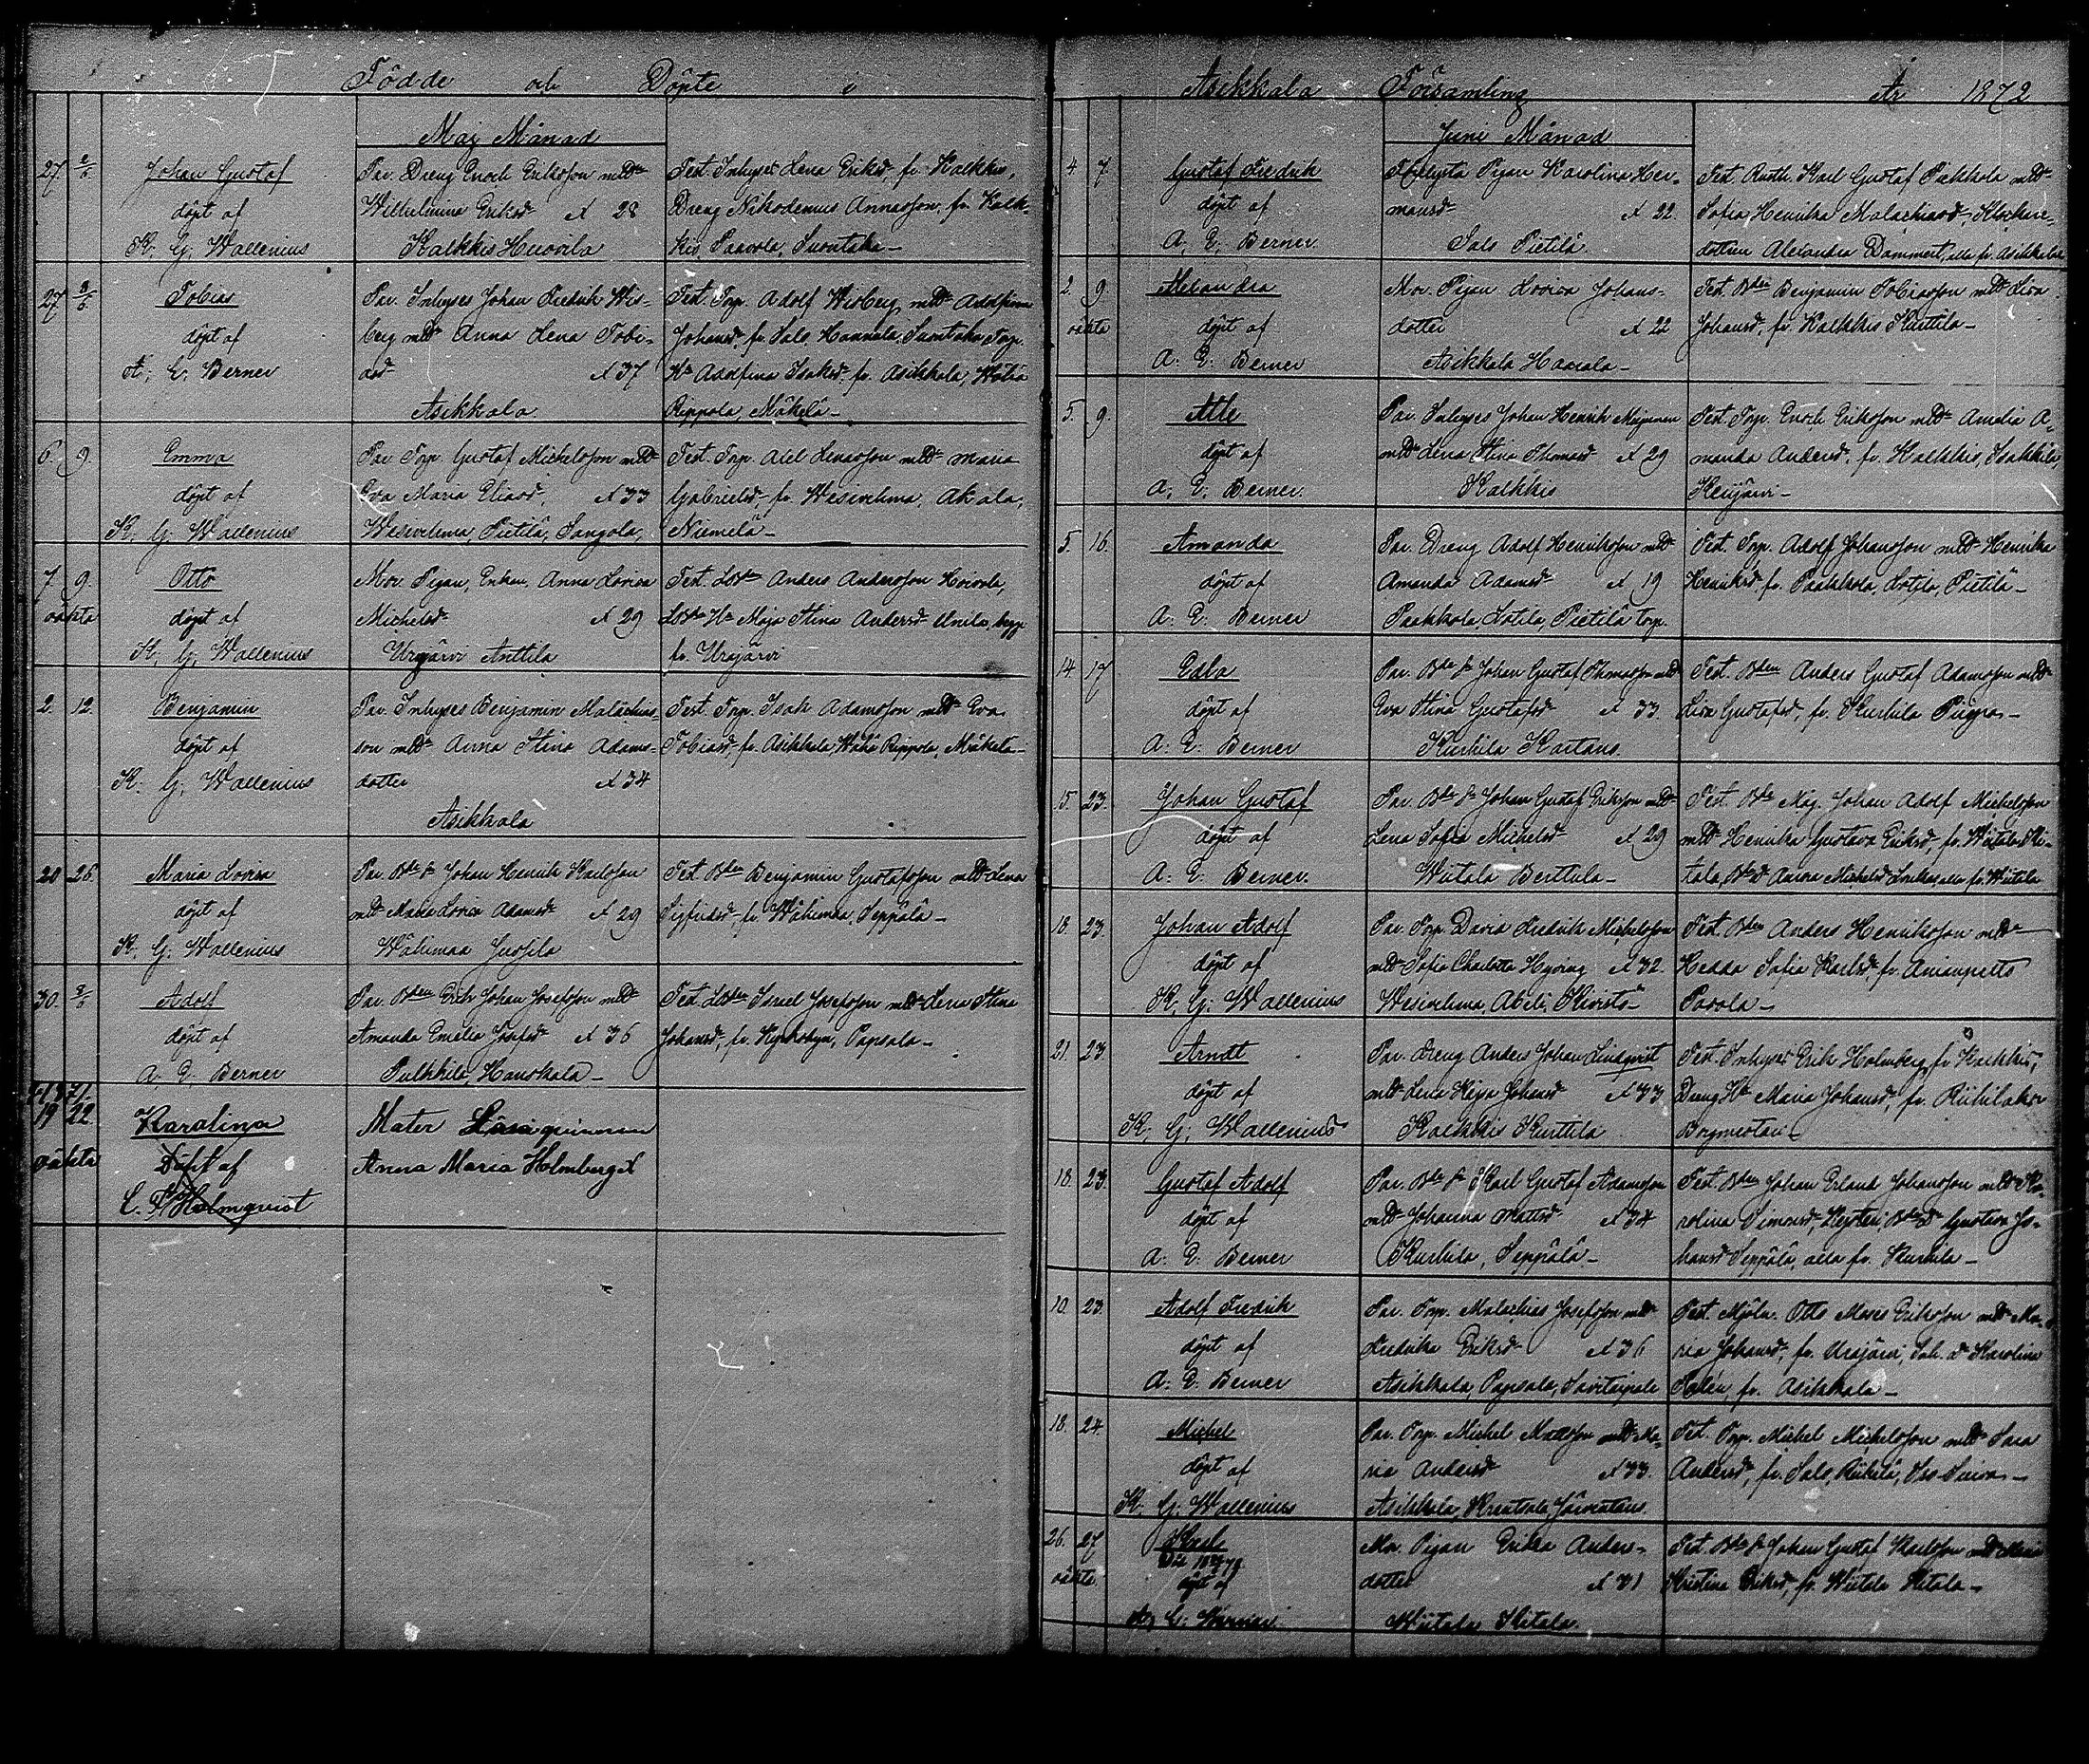 Födde och Döpte i
Maj Månad
27. 2/6 Johan Gustaf
döpt af
K. G. Wallenius
Par. Dreng Enoch Eriksson m. Dr
Wilhelmina Eriksdr Æ 28
Kalkkis Huovila
Test. Inhyses Lena Eriksdr, fr. Kalkkis,
Dreng Nikodemus Annasson, fr. Kalk-
kis, Paavola, Suontaka —
27. Tobias
döpt af
A. E. Berner
Par. Inhyses Johan Fredrik Wis-
berg m. Anna Lena Tobi-
asd. Æ 37
Asikkala
Test. Torp. Adolf Wisberg m. Adolfina
Johansd., fr. Salo, Hannula, Torp.
Hu Adolfina Isaksd., fr. Asikkala, Wähä
Reppola, Mäkelä —
6. 9. Emma
döpt af
K. G. Wallenius
Par. Torp. Gustaf Michelsson m.
Eva Maria Eliasd., Æ 33
Wesivehma, Pietilä, Sangola,
Test. Torp. Abel Lenasson m. Maria
Gabrielsd., fr. Wesivehma, Akala,
Niemelä —
7. 9. Otto
oäkta döpt af
K. G. Wallenius
Mor. Pigan, Enkan, Anna Lovisa
Michelsd. Æ 29
Urajärvi Anttila
Test. Anders Andersson Hoivola,
Hu Maja Stina Andersd. Unila,
fr. Urajärvi
2. 12. Benjamin
döpt af
K. G. Wallenius
Par. Inhyses Benjamin Malachias-
son m. Anna Stina Adams-
dotter Æ 34
Asikkala
Test. Torp. Isak Adamsson m. Eva
Tobiasd., fr. Asikkala Wähä Reppola, Mäkelä —
20 26. Maria Lovisa
döpt af
K. G. Wallenius
Par. Johan Henrik Karlsson
m. Maria Lovisa Adamsd. Æ 29
Wähimaa Jussila
Test. Benjamin Gustafsson m. Lena
Sigfridsd. fr. Wähimaa, Seppälä —
30. Adolf
döpt af
A. E. Berner
Par. Erik Johan Josefsson m.
Amanda Emelia Josefsd. Æ 36
Pulkkila, Hauskala —
Test. Israel Josefsson m. Lena Stina
Johansd., fr. Kyrkobyn, Papsala —
1871.
19 22 Karolina
oäkta Döpt af
C. F. Holmqvist
Mater
Anna Maria Holmberg
Asikkala Församling År 1872
Juni Månad
4. 7. Gustaf Fredrik
döpt af
A. E. Berner.
Pigan Karolina Her-
mansd. Æ 22.
Salo Pietilä.
Test. Rusth. Karl Gustaf Piekkola m.
Sofia Henrika Malachiasd., Klockare-
dottren Alexandra Dammert, alla fr. Asikkala
2. 9 Alexandra
oäkta döpt af
A. E. Berner
Mor. Pigan Lovisa Johans-
dotter Æ 22
Asikkala Haarala —
Test. Benjamin Tobiasson m. Lisa
Johansd., fr. Kalkkis Kurttila —
5. 9. Alle
döpt af
A. E. Berner.
Par. Inhyses Johan Henrik
m. Lena Stina Thomasd. Æ 29
Kalkkis
Test. Torp. Enoch Eriksson m. Amalia A-
manda Andersd., fr. Kalkkis, Isakkila,
5. 16. Amanda
döpt af
A. E. Berner
Par. Dreng Adolf Henriksson m.
Amanda Adamsd. Æ 19
Paakkola, Lotila, Pietilä torp.
Test. Torp. Adolf Johansson m. Henrika
Henriksd., fr. Paakkola, Lotila, Pietilä —
14. 17 Edla
döpt af
A. E. Berner
Par. Johan Gustaf Thomasson m.
Eva Stina Gustafsd. Æ 33.
Kurhila Kartano.
Test. Anders Gustaf Adamsson m.
Lisa Gustafsd., fr. Kurhila —
15. 23. Johan Gustaf
döpt af
A. E. Berner.
Par. Johan Gustaf Eriksson m.
Lena Sofia Michelsd. Æ 29
Wiitala Berttula —
Test. Johan Adolf Michelsson
m. Henrika Gustava Eriksd., fr. Wiitala Ki-
tala, Anna Michelsd. alla fr. Wiitala
18. 23. Johan Adolf
döpt af
K. G. Wallenius
Par. Torp. David Fredrik Michelsson
m. Sofia Charlotta Æ 32.
Wesivehma, Kivistö —
Test. Anders Henriksson m.
Hedda Sofia Karlsd. fr. Anianpelto
Pavola —
21. 23. Arndt
döpt af
K. G. Wallenius
Par. Dreng Anders Johan Lindqvist
m. Lena Kajsa Johansd. Æ 33
Kalkkis Kurttila
Test. Inhyses Erik Holmberg, fr. Kalkkis,
Dreng Hu Maria Johansd., fr.
18. 23. Gustaf Adolf
döpt af
A. E. Berner
Par. Karl Gustaf Adamsson
m. Johanna Mattsd. Æ 34
Kurhila, Seppälä —
Test. Johan Erland Johansson m. Ka-
rolina Simonsd., Gustava Jo-
hansd. Seppälä, alla fr. Kurhila —
10. 23. Adolf Fredrik
döpt af
A. E. Berner
Par. Torp. Malachias Josefsson m.
Fredrika Eriksd. Æ 36
Asikkala, Papsala, Savitaipale
Test. Mjöln. Otto Moses Eriksson m. Ma-
ria Johansd., fr. Urajärvi, Karolina
fr. Asikkala —
18. 24. Michel
döpt af
K. G. Wallenius
Par. Torp. Michel Mattsson m. Ma-
ria Andersd. Æ 33.
Asikkala,
Test. Torp. Michel Michelsson m. Sara
Andersd., fr. Salo,
26. 27 Karl
oäkta döpt af
Mor. Pigan Erika Anders-
dotter Æ 31
Wiitala Kitala.
Test. Johan Gustaf Karlsson m.
Kristina Eriksd., fr. Wiitala Kitala —